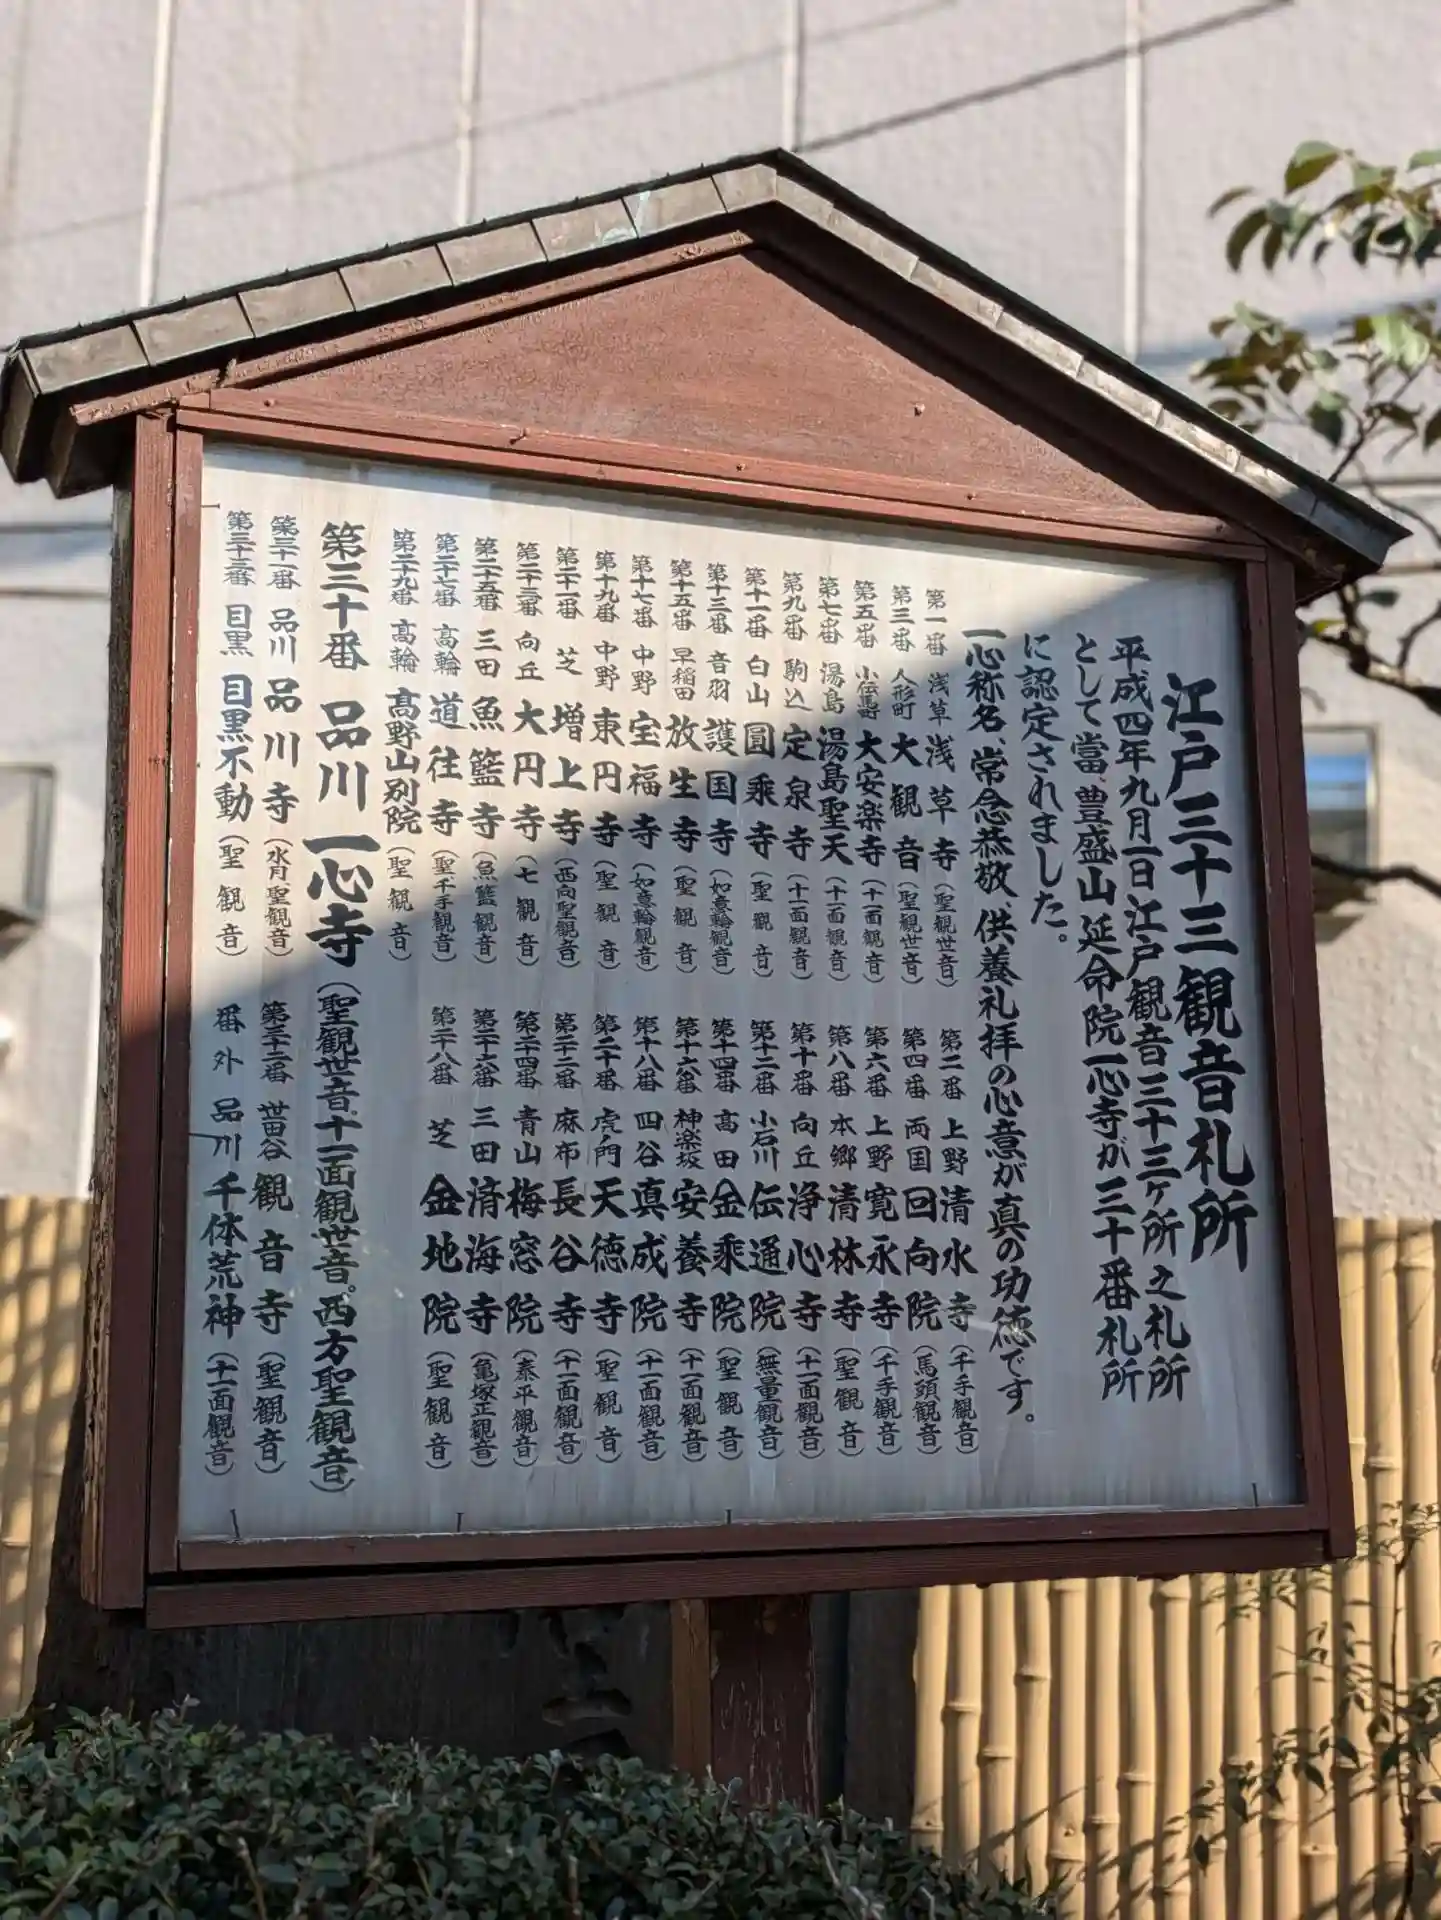 江戸三十三観音札所
平成四年九月一日江戸観音三十三ヶ所之札所
として當、豊盛山延命院一心寺が三十番札所
に認定されました。
一心称名、常念恭敬、供養礼拝の心意が真の功徳です。
第一番 浅草 浅草寺(聖観世音)
第二番 上野 清水寺(千手観音)
第三番 人形町 大観音(聖観世音)
第四番 両国 回向院(馬頭観音)
第五番 小伝馬町 大安楽寺(十一面観音)
第六番 上野 寛永寺(千手観音)
第七番 湯島 湯島聖天(十一面観音)
第八番 本郷 清林寺(聖観音)
第九番 駒込 定泉寺(十一面観音)
第十番 向丘 浄心寺(十一面観音)
第十一番 白山 圓乘寺(聖観音)
第十二番 小石川 伝通院(無量観音)
第十三番 音羽 護国寺(如意輪観音)
第十四番 高田 金乘院(聖観音)
第十五番 早稲田 放生寺(聖観音)
第十六番 神楽坂 安養寺(十一面観音)
第十七番 中野 宝福寺(如意輪観音)
第十八番 四谷 真成院(十一面観音)
第十九番 中野 東円寺(聖観音)
第二十番 虎ノ門 天徳寺(聖観音)
第二十一番 芝 増上寺(西向聖観音)
第二十二番 麻布 長谷寺(十一面観音)
第二十三番 向丘 大円寺(七観音)
第二十四番 青山 梅窓院(泰平観音)
第二十五番 三田 魚籃寺(魚籃観音)
第二十六番 三田 済海寺(亀塚正観音)
第二十七番 高輪 道往寺(聖、千手観音)
第二十八番 芝 金地院(聖観音)
第二十九番 高輪 高野山別院(聖観音)
第三十番 品川 一心寺(聖観世音、十一面観世音。西方聖観音)
第三十一番 品川 品川寺(水月聖観音)
第三十二番 世田谷 観音寺(聖観音)
第三十三番 目黒 目黒不動(聖観音)
番外 品川 千体荒神(十一面観音)